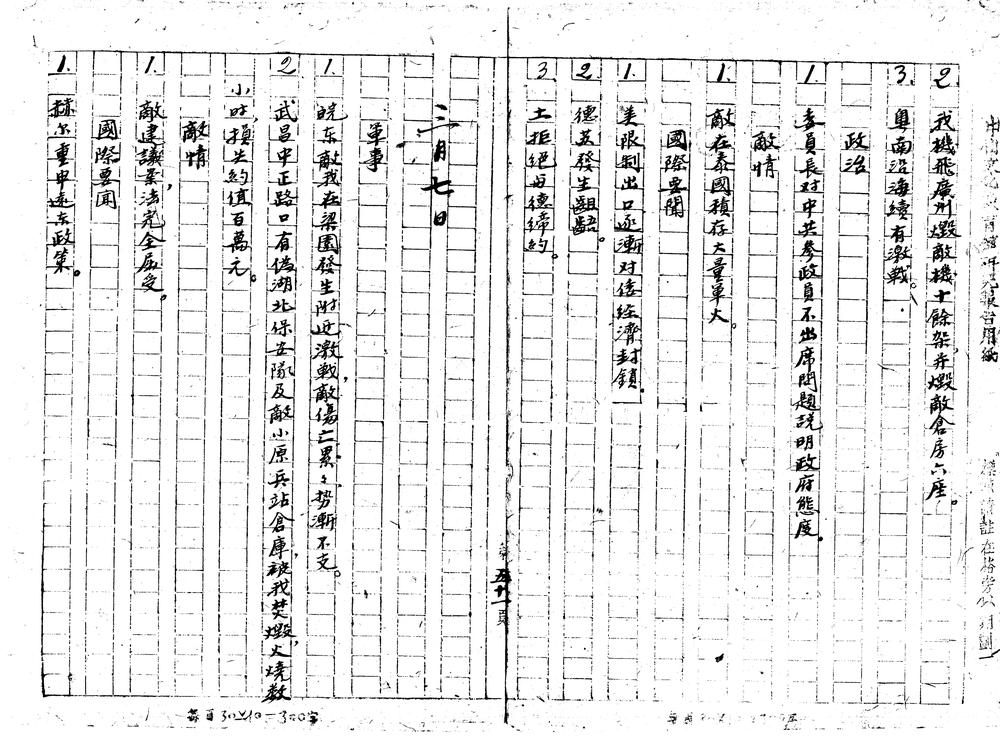 2. 我機飛廣州燬敵機十餘架并燬敵倉房六座。
3. 粵南沿海續有激戰。
政治
1. 委員長对中共參政員不出席問題説明政府態度。
敵情
1. 敵在泰國積存大量軍火。
國際要聞
1. 美限制出口逐漸对倭経濟封鎖。
2. 德英發生齟齬。
3. 土拒絕与德締約。
第五十一頁
三月七日
軍事
1. 皖东敵我在梁園發生附近激戰，敵傷亡累々，势漸不支。
2 武昌中正路口有偽湖北保安隊及敵小原兵站倉庫，被我焚燬，火燒数
小時，損失約值百萬元。
敵情
1. 敵建議案，法完全屈受。
國際要闻
1. 赫尔重申遠东政策。
每頁30×10=300字